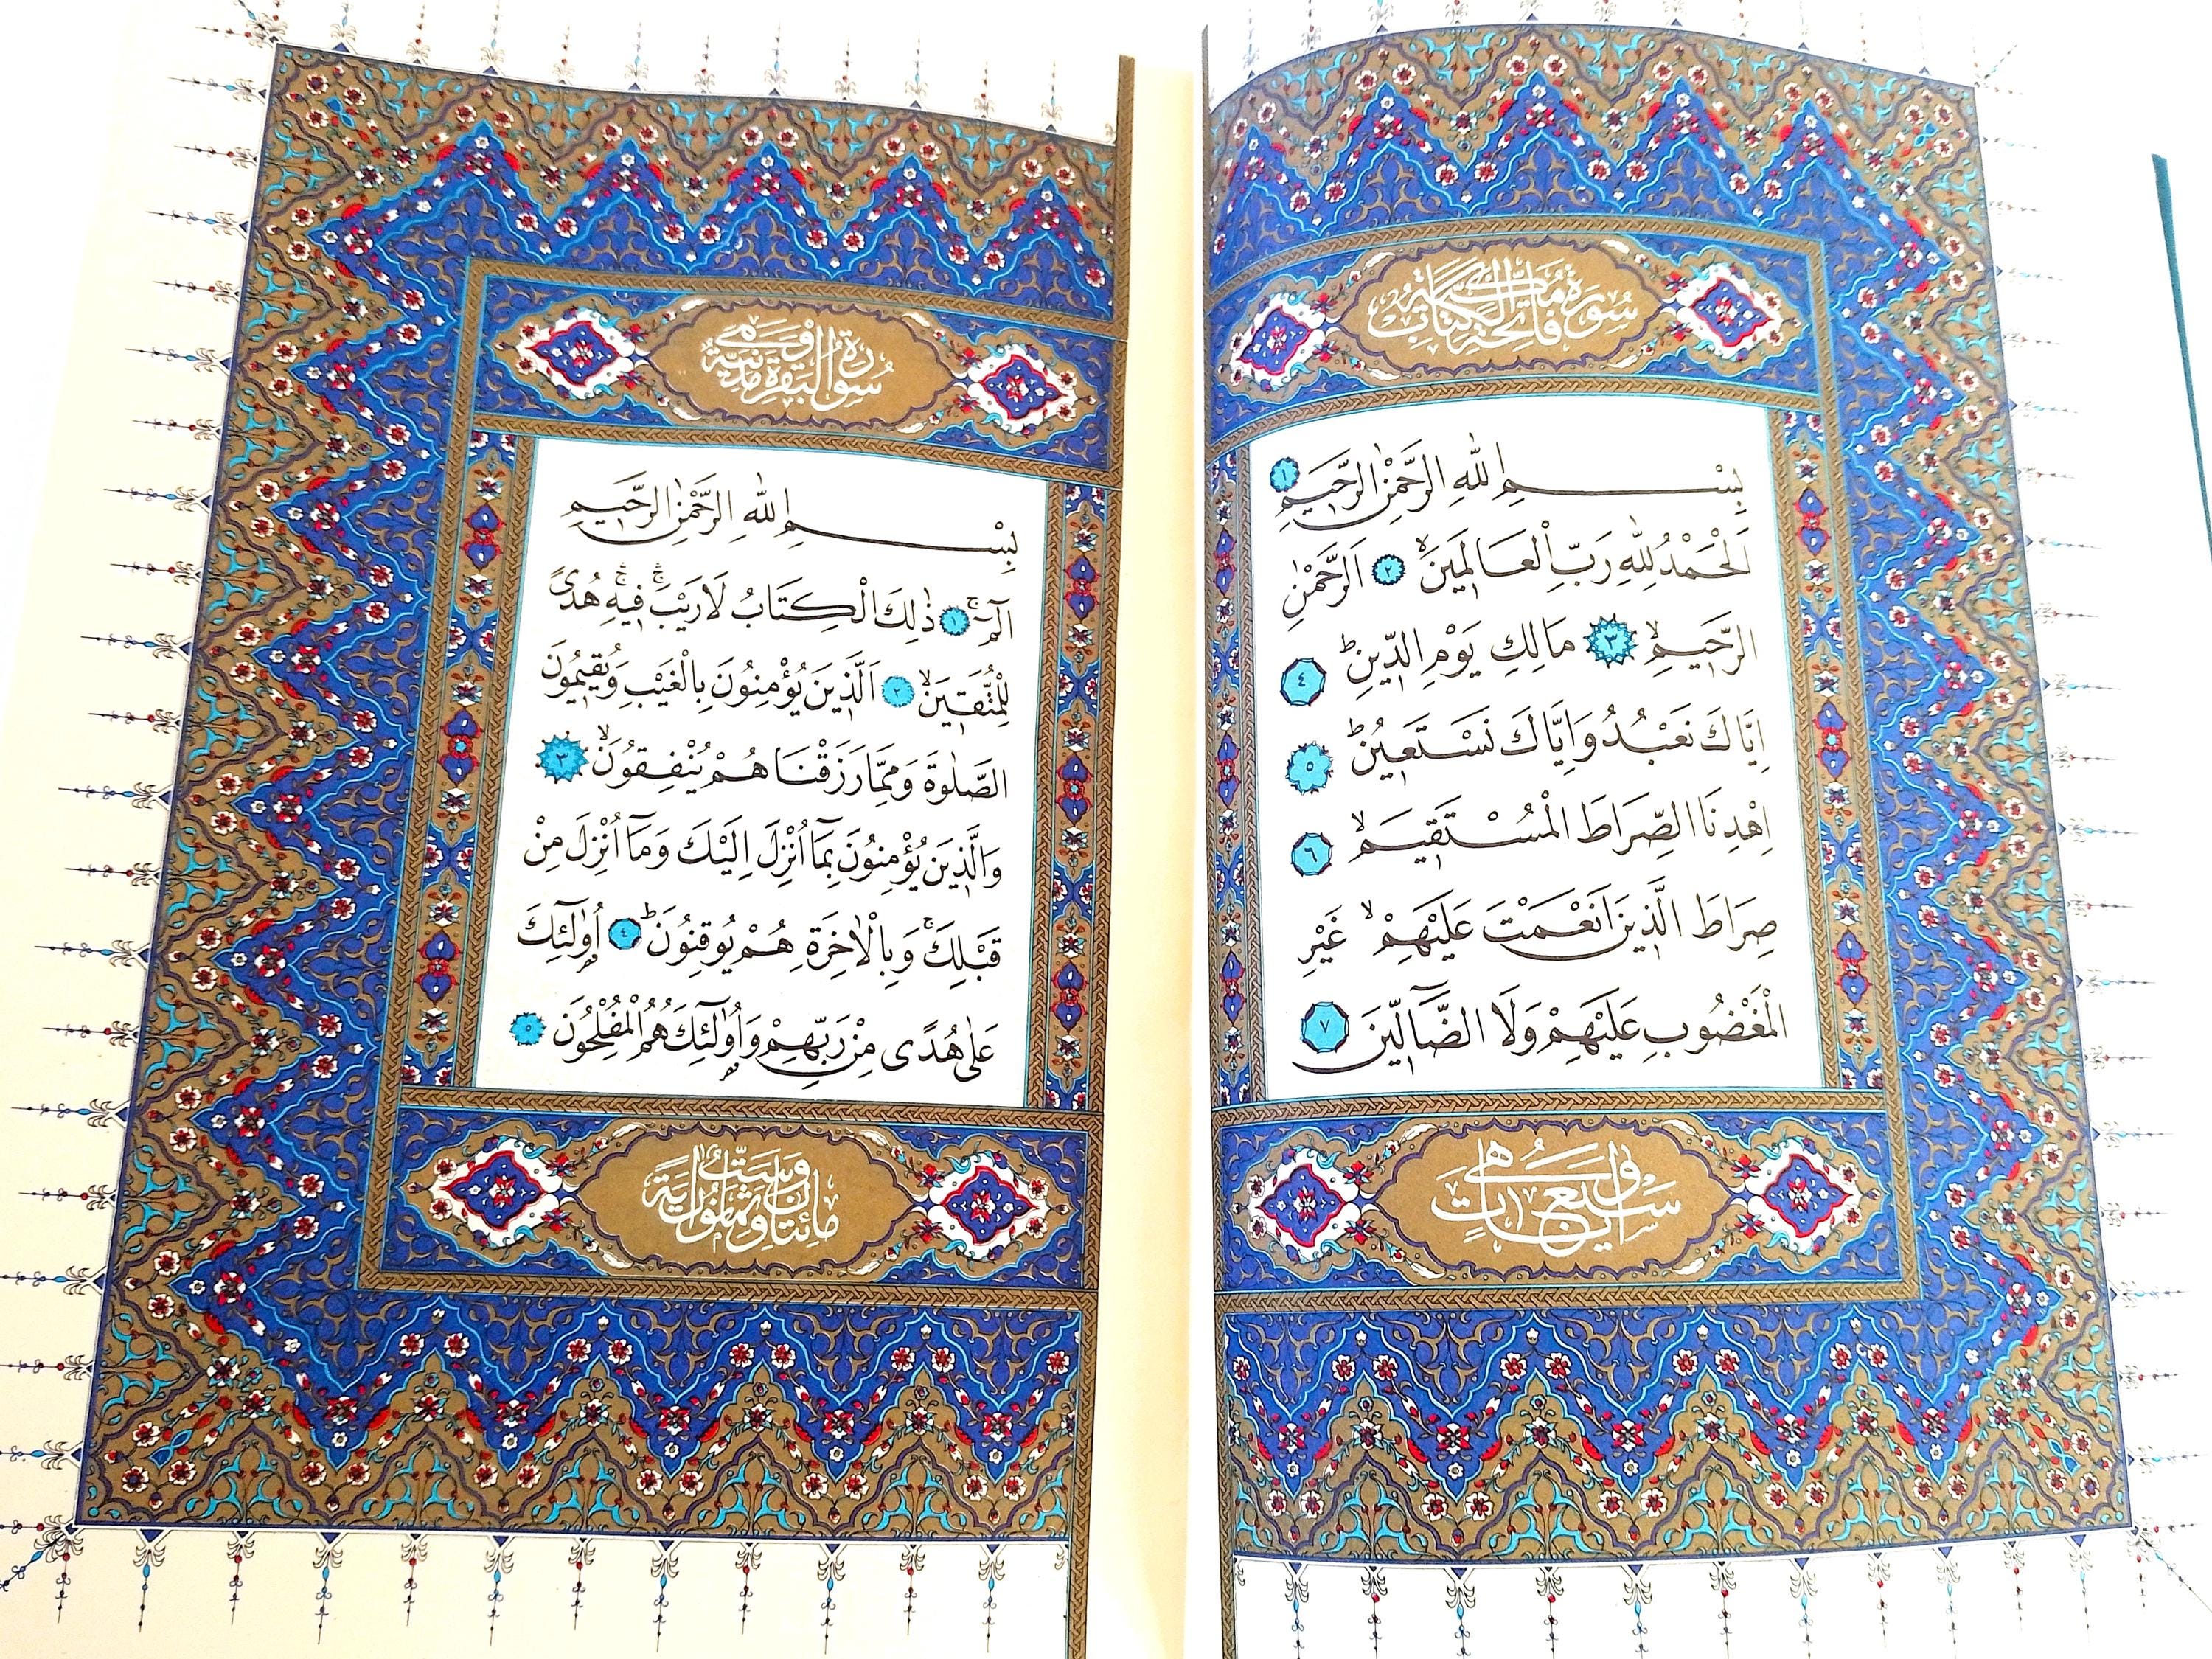 سُورَةُ فَاتِحَةِ الْكِتَابِ مَكِّيَّةٌ
بِسْمِ اللّٰهِ الرَّحْمٰنِ الرَّحٖيمِ ١
اَلْحَمْدُ لِلّٰهِ رَبِّ الْعَالَمٖينَۙ ٢ اَلرَّحْمٰنِ
الرَّحٖيمِۙ ٣ مَالِكِ يَوْمِ الدّٖينِؕ ٤
اِيَّاكَ نَعْبُدُ وَاِيَّاكَ نَسْتَعٖينُؕ ٥
اِهْدِنَا الصِّرَاطَ الْمُسْتَقٖيمَۙ ٦
صِرَاطَ الَّذٖينَ اَنْعَمْتَ عَلَيْهِمْۙ غَيْرِ
الْمَغْضُوبِ عَلَيْهِمْ وَلَا الضَّٓالّٖينَ ٧
وَهِيَ سَبْعُ اٰيَاتٍ
سُورَةُ الْبَقَرَةِ مَدَنِيَّةٌ وَهِيَ
بِسْمِ اللّٰهِ الرَّحْمٰنِ الرَّحٖيمِ
الٓمٓۚ ١ ذٰلِكَ الْكِتَابُ لَا رَيْبَۚۛ فٖيهِۚۛ هُدًى
لِلْمُتَّقٖينَۙ ٢ اَلَّذٖينَ يُؤْمِنُونَ بِالْغَيْبِ وَيُقٖيمُونَ
الصَّلٰوةَ وَمِمَّا رَزَقْنَاهُمْ يُنْفِقُونَۙ ٣
وَالَّذٖينَ يُؤْمِنُونَ بِمَٓا اُنْزِلَ اِلَيْكَ وَمَٓا اُنْزِلَ مِنْ
قَبْلِكَۚ وَبِالْاٰخِرَةِ هُمْ يُوقِنُونَؕ ٤ اُو۬لٰٓئِكَ
عَلٰى هُدًى مِنْ رَبِّهِمْ وَاُو۬لٰٓئِكَ هُمُ الْمُفْلِحُونَ ٥
مِائَتَانِ وَسِتٌّ وَثَمَانُونَ اٰيَةً